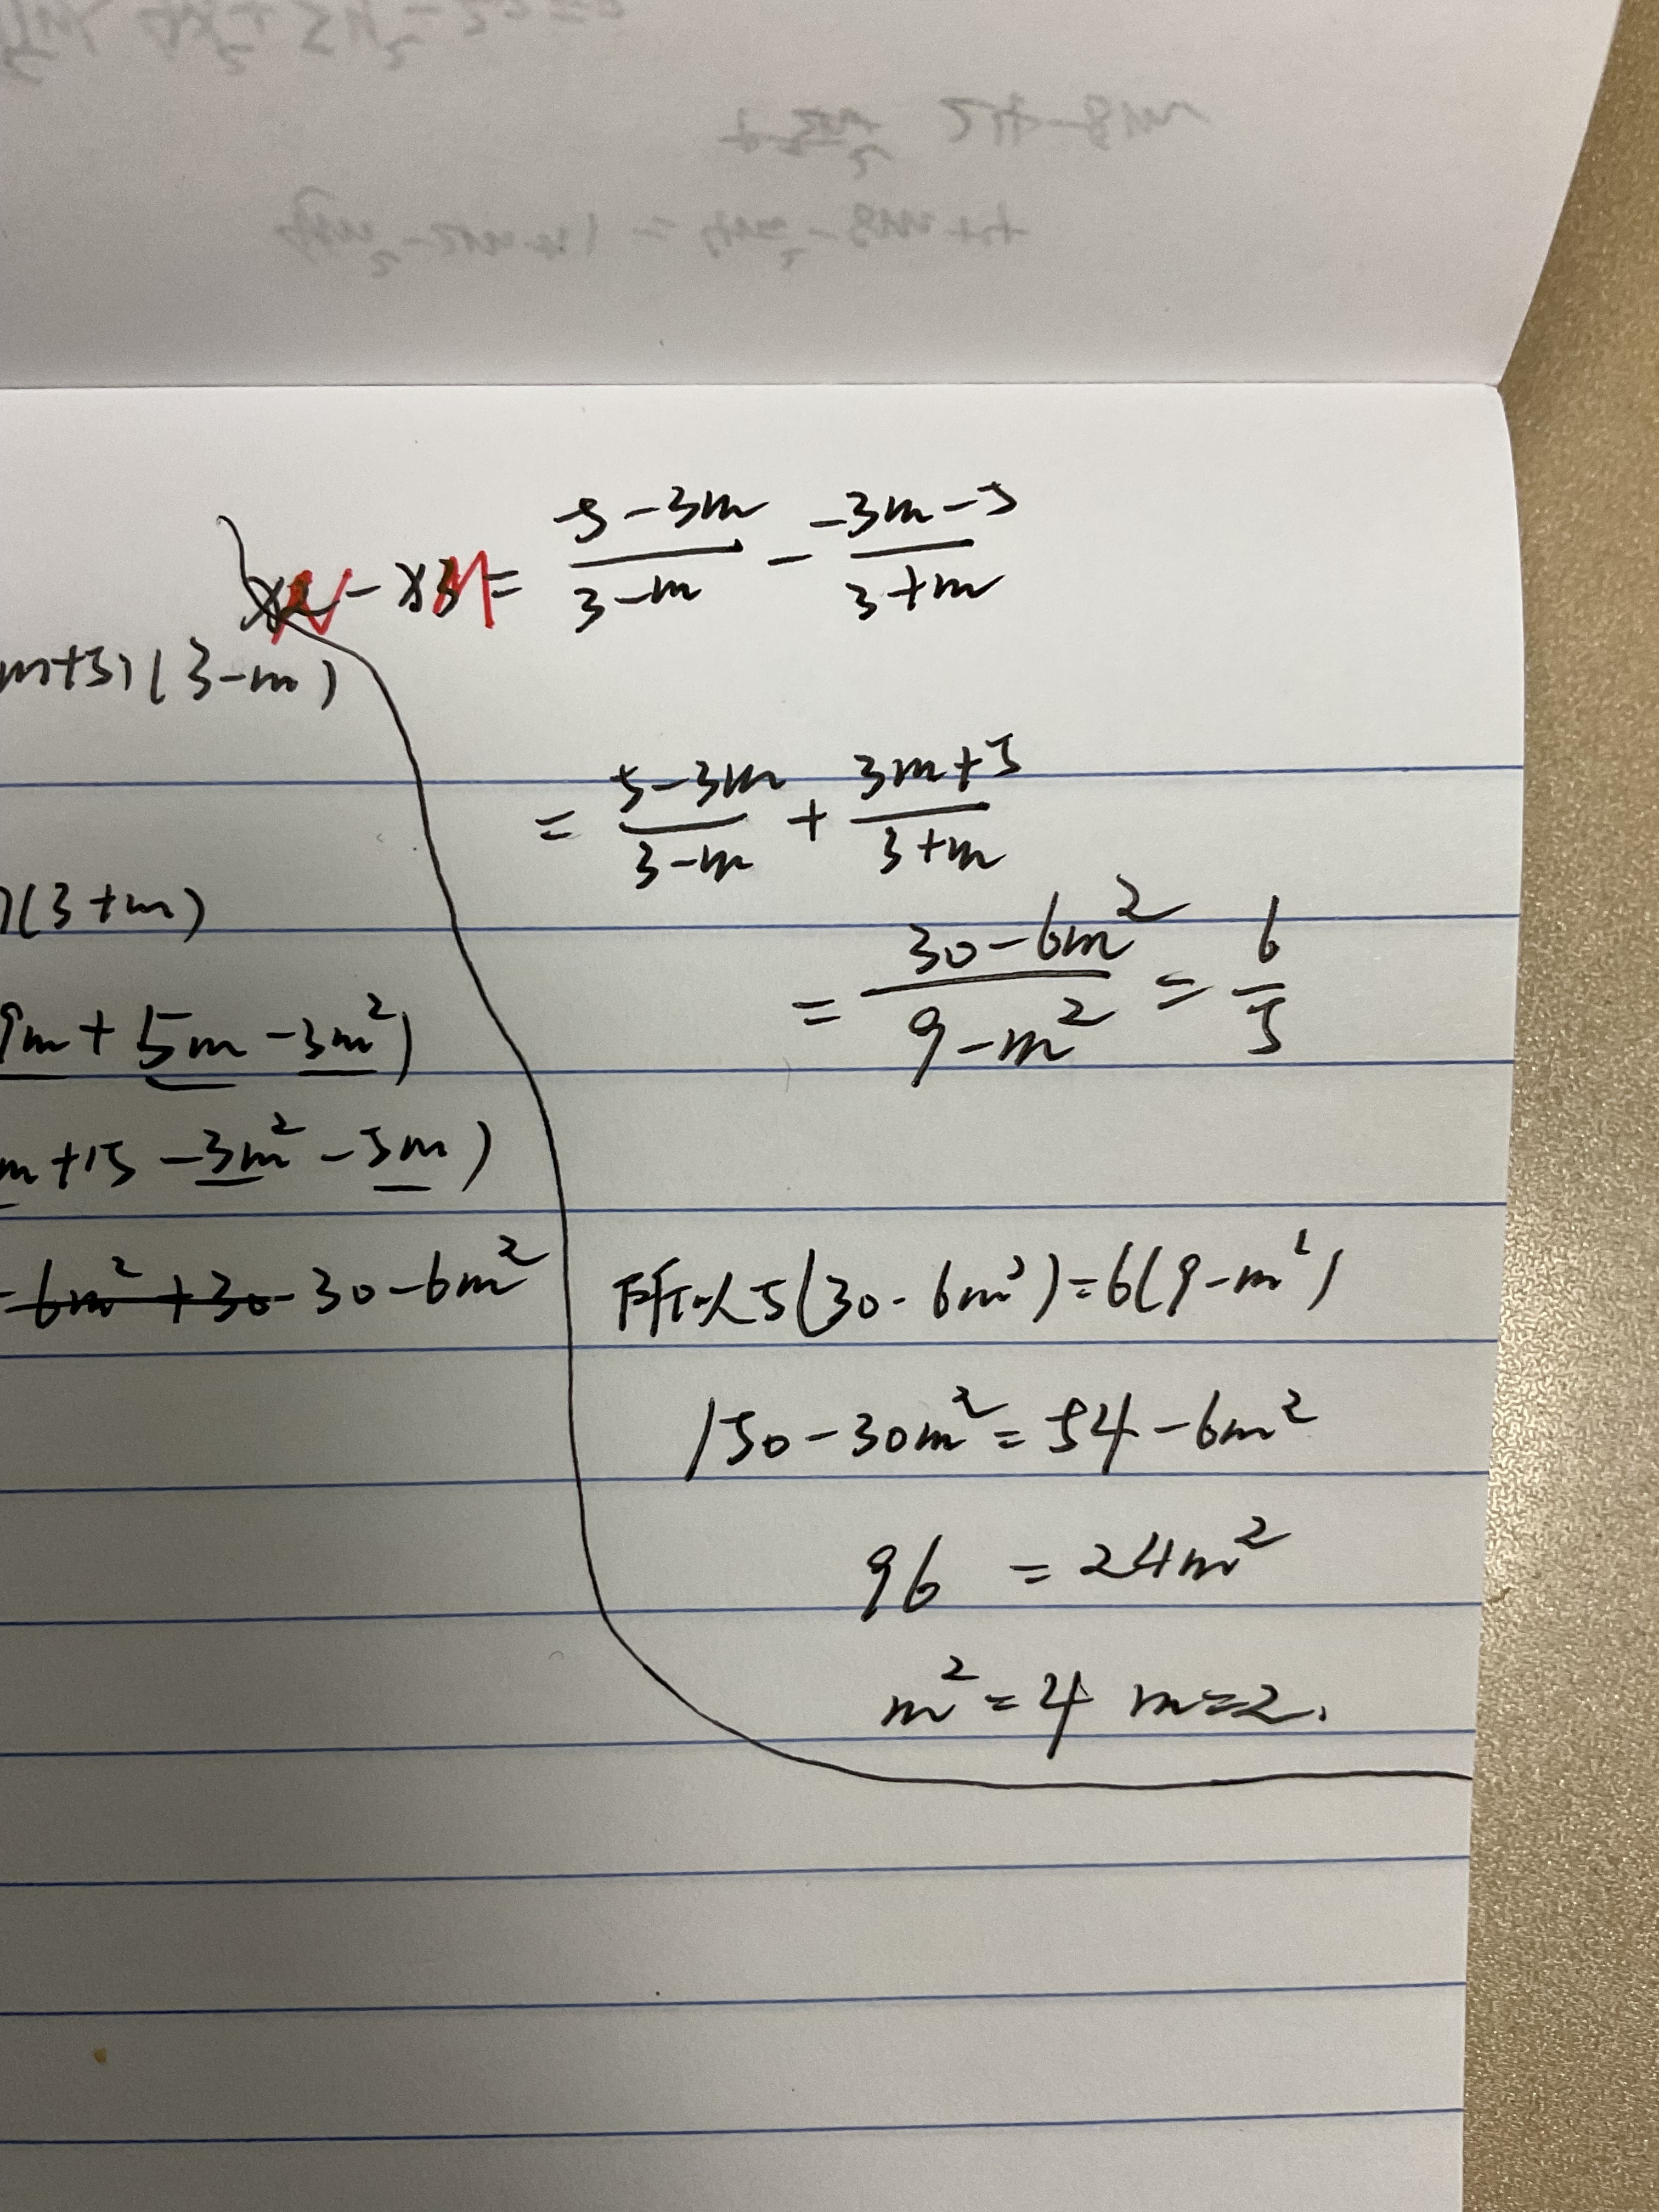 xN - xM = \frac{5-3m}{3-m} - \frac{-3m-5}{3+m}
m+5)(3-m)
= \frac{5-3m}{3-m} + \frac{3m+5}{3+m}
)(3+m)
= \frac{30-6m^2}{9-m^2} = \frac{6}{5}
9m + 5m - 3m^2)
m + 15 - 3m^2 - 5m)
-6m^2 + 30 30 - 6m^2
所以 5(30 - 6m^2) = 6(9 - m^2)
150 - 30m^2 = 54 - 6m^2
96 = 24m^2
m^2 = 4 m = 2.